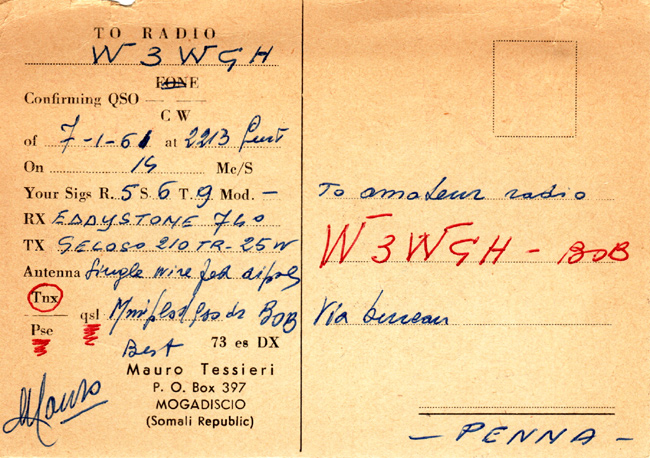 TO RADIO
W3WGH
FONE
Confirming QSO
CW
of 7-1-61 at 2213 Gmt
On 14 Mc/S
Your Sigs R. 5 S 6 T. 9 Mod. -
RX EDDYSTONE 740
TX GELOSO 210TR-25W
Antenna Single wire fed dipole
Tnx
Pse qsl BOB
Best 73 es DX
Mauro Tessieri
P. O. Box 397
MOGADISCIO
(Somali Republic)
Mauro
To amateur radio
W3WGH - BOB
Via bureau
- PENNA -